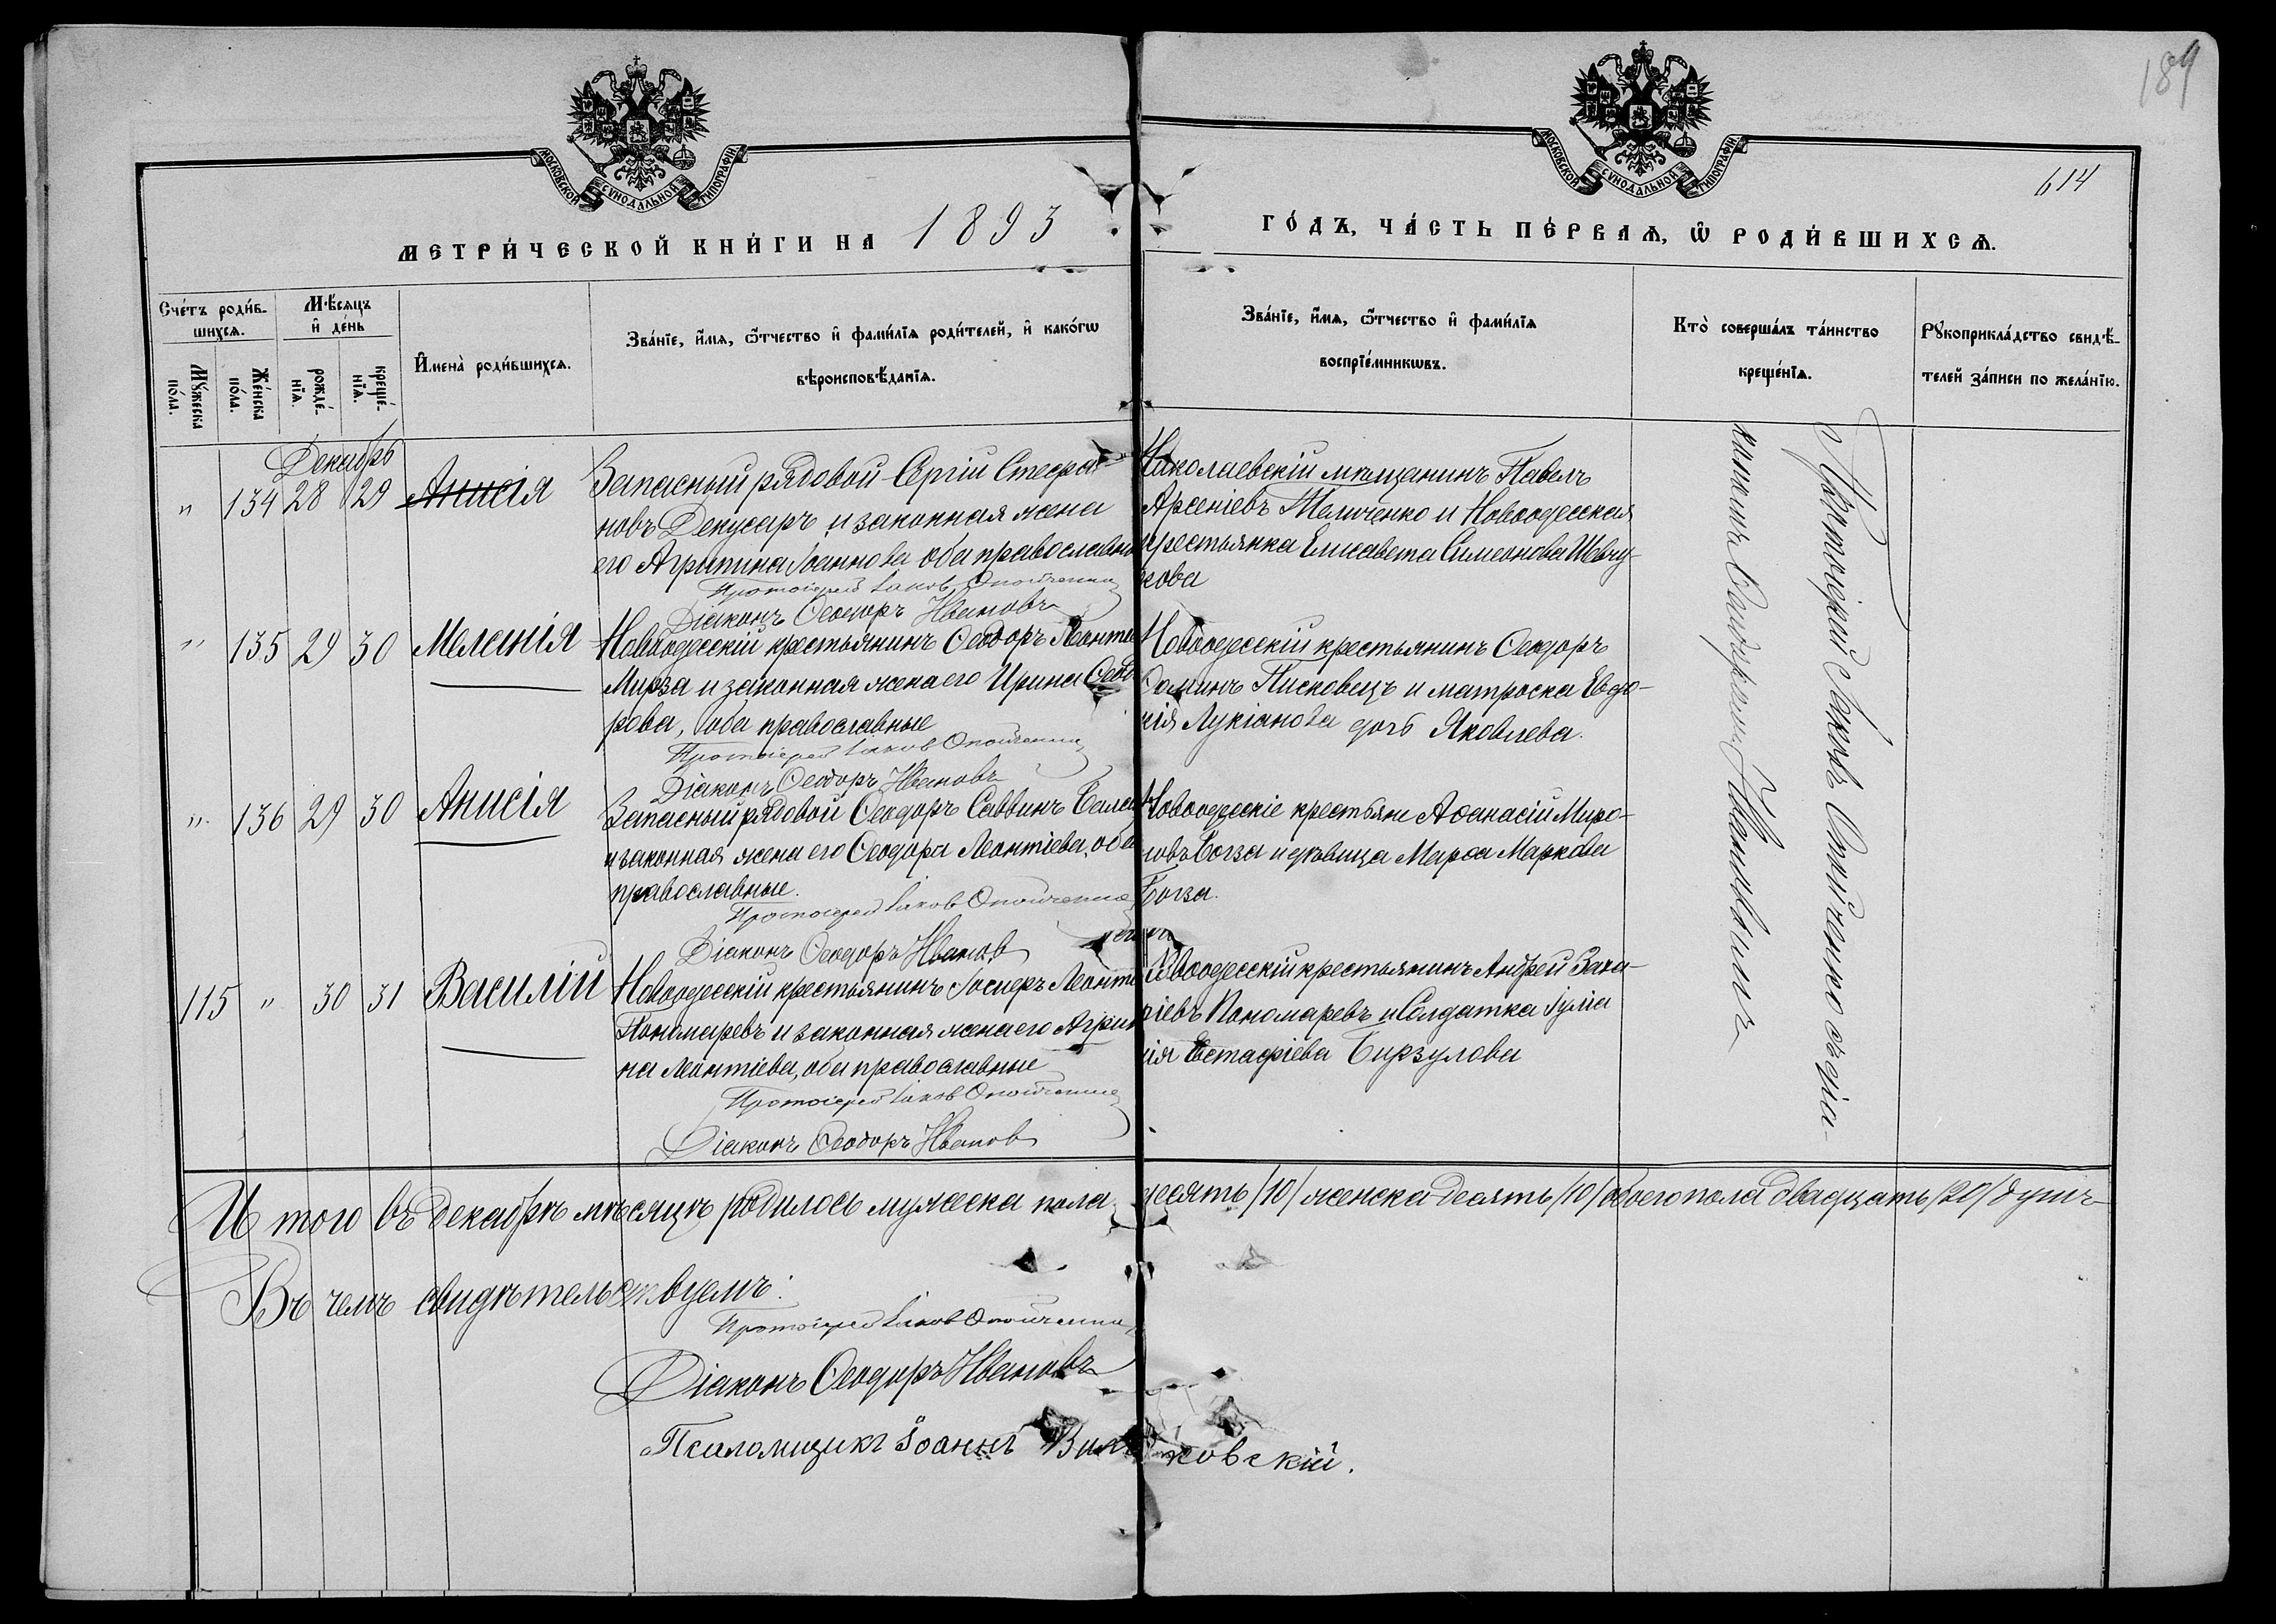 189
МОСКОВСКОЙ СѴНОДАЛЬНОЙ ТИПОГРАФІИ
МОСКОВСКОЙ СѴНОДАЛЬНОЙ ТИПОГРАФІИ
614
МЕТРИ́ЧЕСКОЙ КНИ́ГИ НА 1893
ГО́ДЪ, ЧА́СТЬ ПЕ́РВАѦ, Ѡ РОДИ́ВШИХСѦ.
Сче́тъ роди́в-
шихсѧ.
Мꙋ́жеска
по́ла.
Же́нска
по́ла.
Мѣ́сѧцъ
и де́нь
рожде́-
нїѧ.
креще́-
нїѧ.
Имена̀ роди́вшихсѧ.
Зва́нїе, и́мѧ, ѻ́тчество и фами́лїѧ роди́телей, и како́гѡ
вѣроисповѣ́данїѧ.
Зва́нїе, и́мѧ, ѻ́тчество и фами́лїѧ
воспрїе́мникѡвъ.
Кто̀ соверша́лъ та́инство
креще́нїѧ.
Рꙋкоприкла́дство свидѣ́-
телей за́писи по жела́нїю.
Декабрь
" 134 28 29 Анисія
Запасный рядовой Сергій Стефа-
новъ Декусаръ и законная жена
его Агрипина Іоаннова оба православны
Протоіерей Іаковъ Опойченко
Діаконъ Ѳеодоръ Ивановъ
Николаевскій мѣщанинъ Павелъ
Арсеніевъ Меличенко и Новоодесская
крестьянка Елисавета Симеонова Шевчу-
кова
" 135 29 30 Меланія
Новоодесскій крестьянинъ Ѳеодоръ Леонтіе
Мирза и законная жена его Ирина Ѳеодо
рова, оба православные
Протоіерей Іаковъ Опойченко
Діаконъ Ѳеодоръ Ивановъ
Новоодесскій крестьянинъ Ѳеодоръ
Ѳоминъ Писковецъ и матроска Евдо-
кія Лукіанова дочь Яковлева.
" 136 29 30 Анисія
Запасный рядовой Ѳеодоръ Саввинъ
и законная жена его Ѳеодора Леонтіева, оба
православные.
Протоіерей Іаковъ Опойченко
Діаконъ Ѳеодоръ Ивановъ
Новоодесскіе крестьяне Аѳанасій Миро-
новъ Богза и дѣвица Марѳа Маркова
Богза.
115 " 30 31 Василій
Новоодесскій крестьянинъ Іосифъ Леонті
Пономаревъ и законная жена его Агрипи
на Леонтіева, оба православные
Протоіерей Іаковъ Опойченко
Діаконъ Ѳеодоръ Ивановъ
Новоодесскій крестьянинъ Андрей Заха-
ріевъ Пономаревъ и Солдатка Іулія
нія Евстафіева Бирзулова
Протоіерей Іаковъ Опойченко съ діа-
кономъ Ѳеодоромъ Ивановымъ
И того въ декабрѣ мѣсяцѣ родилось мужеска пола десять /10/ женска десять /10/ обоего пола двадцать /20/ душъ
Въ чемъ свидѣтельствуемъ:
Протоіерей Іаковъ Опойченко
Діаконъ Ѳеодоръ Ивановъ
Псаломщикъ Іоаннъ